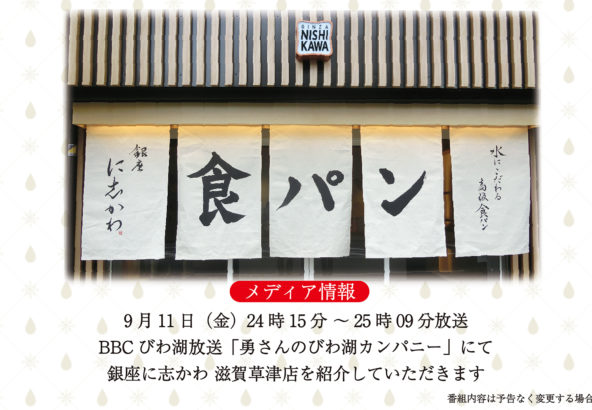 GINZA
NISHI
KAWA
銀座
に志かわ
食パン
水にこだわる
高級食パン
メディア情報
9月11日（金）24時15分 ～ 25時09分放送
BBC びわ湖放送「勇さんのびわ湖カンパニー」にて
銀座に志かわ 滋賀草津店を紹介していただきます
番組内容は予告なく変更する場合